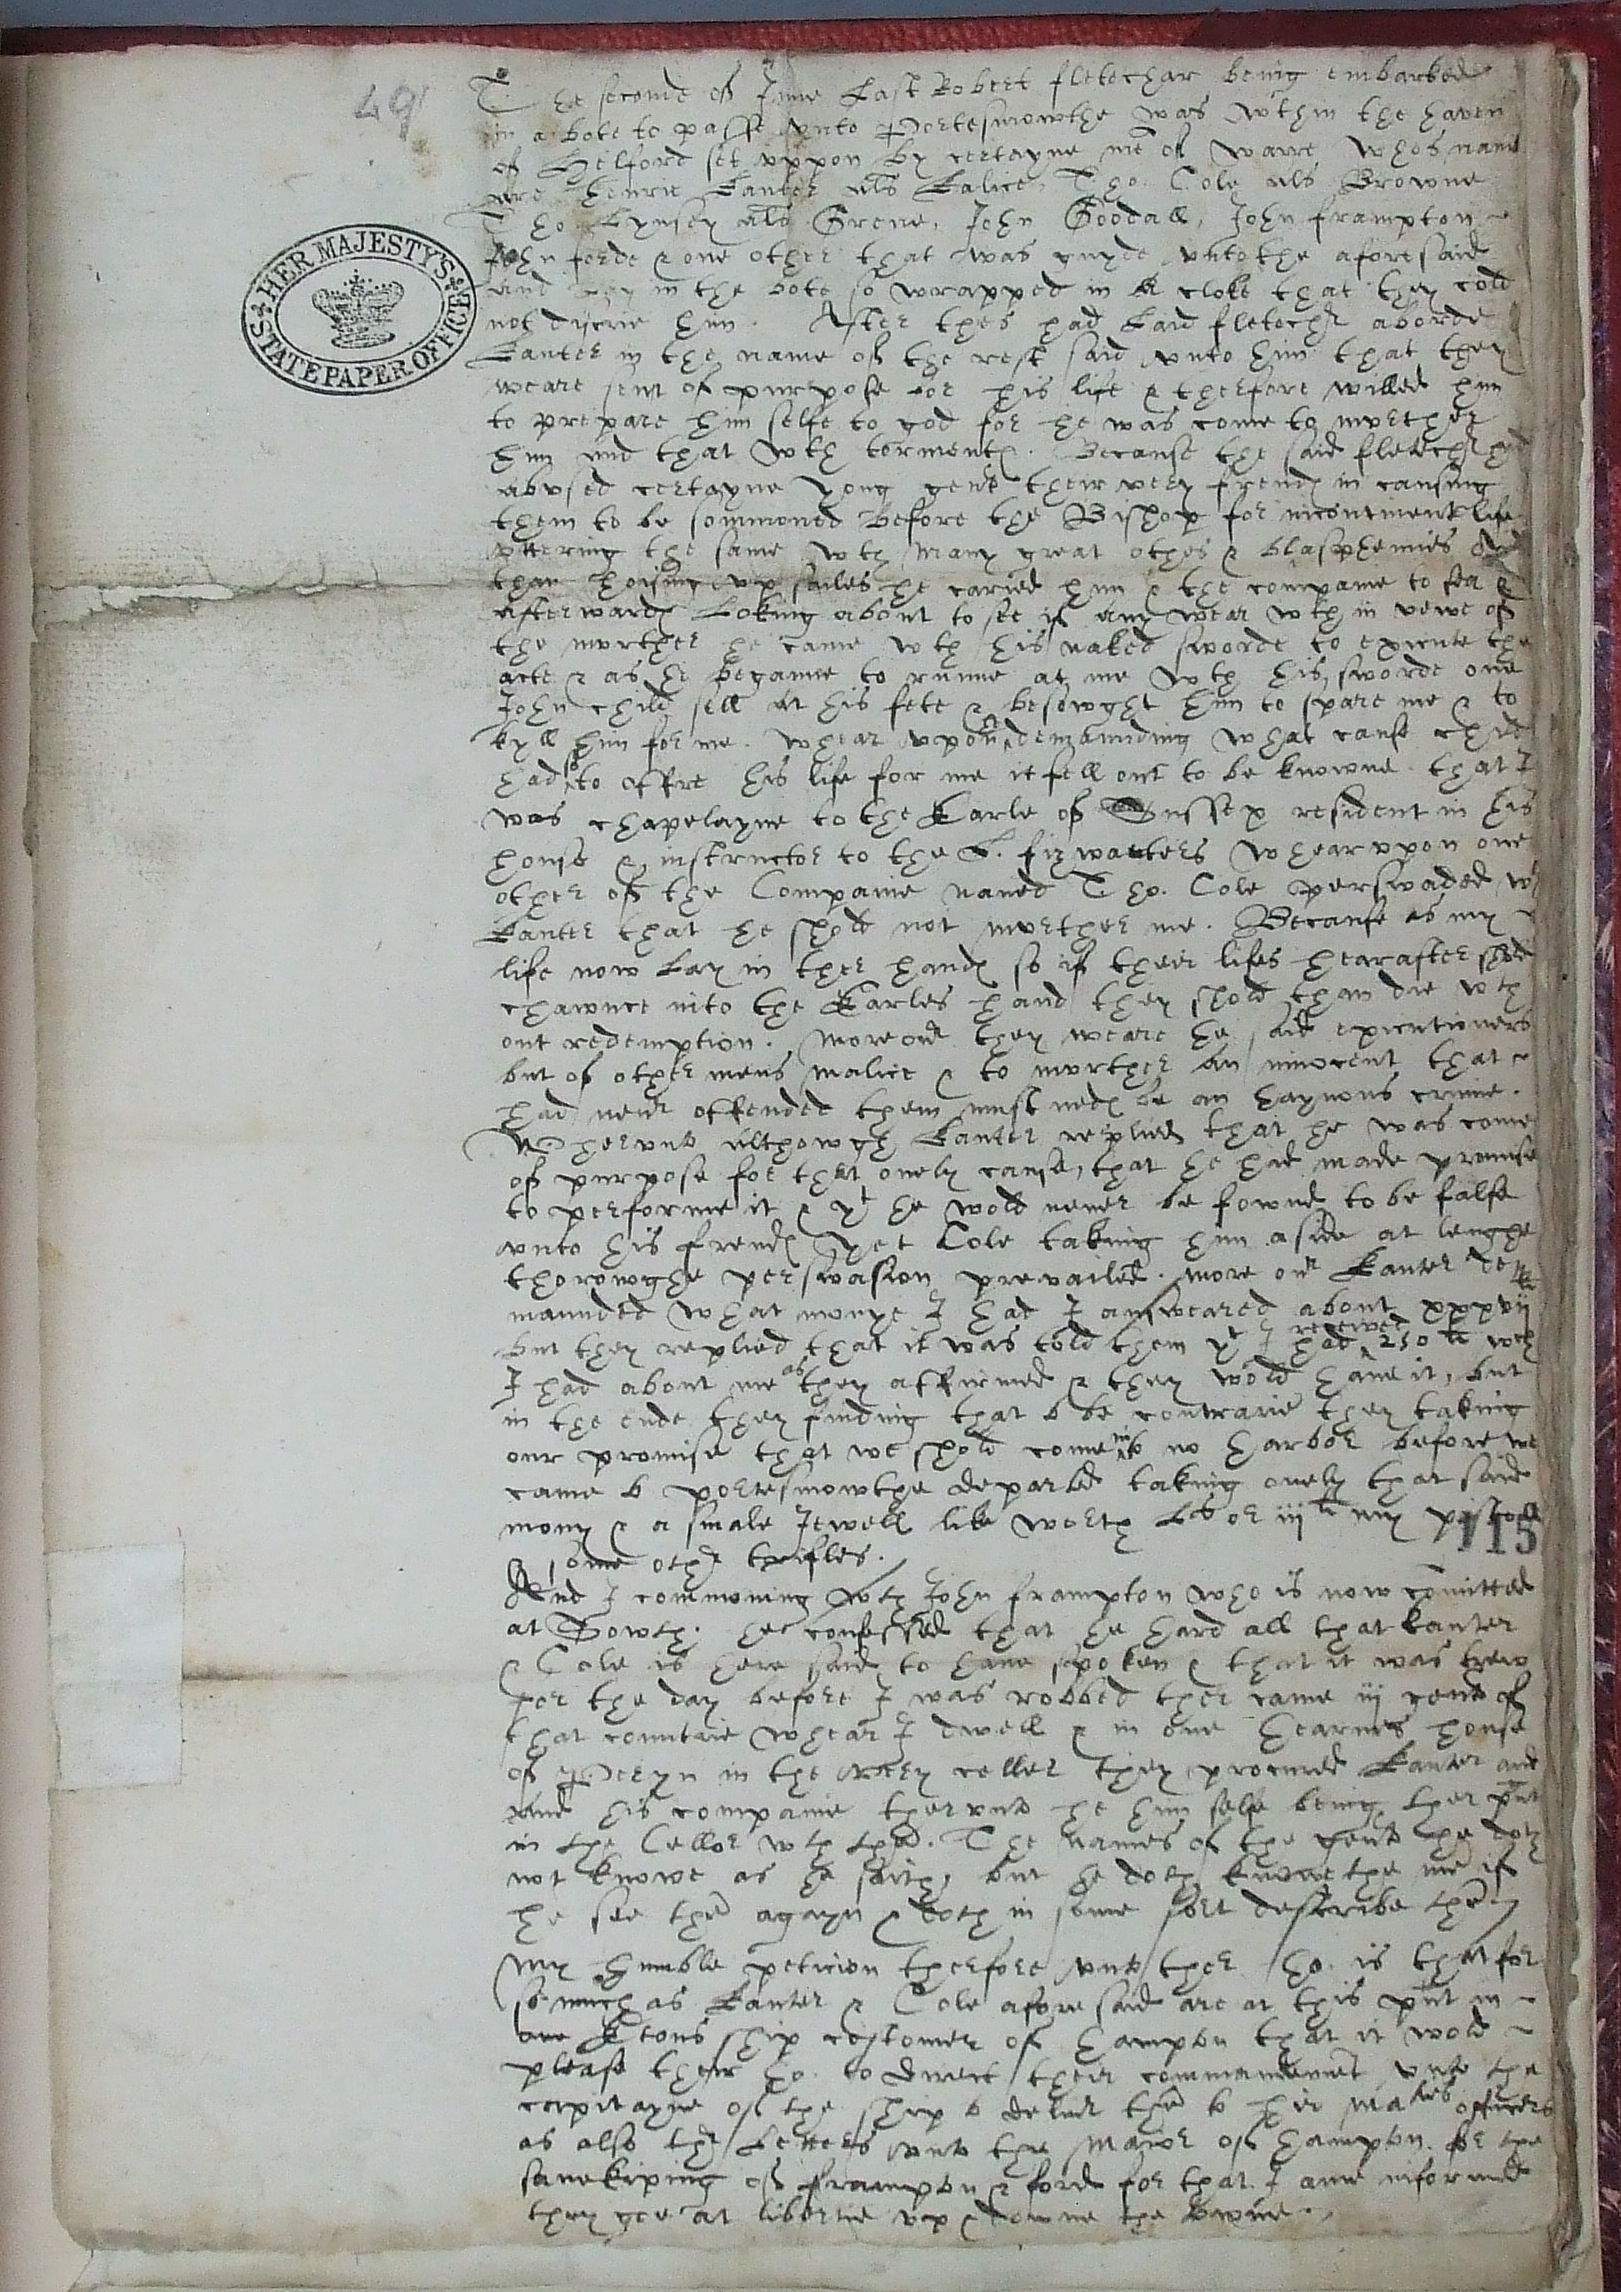 49
The seconde of June last Robert fletechar being embarked
in a bote to passe unto Portesmowthe was wthin the haven
of Helford set uppon by certayne me of warre whos name
are Henrie Kanter als Kalice, Tho. Cole als Browne
Tho Lynsey als Grene, John Goodall, John frampton
John forde & one other that was guyde unto the aforesaid
and lay in the bote so wrapped in a cloke that they cold
not discrie him. After thes had laid fletechr aborde
Kanter in the name of the rest said unto him that they
weare sent of purpose for his life & therfore willed him
to prepare him selfe to god for he was come to murther
him and that wth torments. Because the said fletechr had
abused certayne yong gent their very frends in causing
them to be sommoned before the Bishop for incontinent life
uttering the same wth many great othes & blasphemies And
than hoising up sailes he caried him & the companie to sea &
afterwards loking about to see if any wear wthin vewe of
the murther he came wth his naked sworde to exicute the
acte & as he beganne to runne at me wth his sworde one
John Child fell at his fete & besowght him to spare me & to
kyll him for me. Whear upon he demaunding what cause Child
had so to offre his life for me it fell out to be knowne that I
was chapelayne to the Earle of Sussex resident in his
house & instructor to the L. fizwauters whearupon one
other of the Companie named Tho. Cole perswaded wth
Kanter that he shold not murther me. Because as my
life now lay in ther hands so if their lifes hearafter shold
chawnce into the Earles hand they shold than die wth
out redemption. Moreour they weare he said exicutioners
but of other mens malice & to murther an innocent that
had neur offended them must neds be an haynous crime.
Wherunto althowgh Kanter replied that he was come
of purpose for that onely cause, that he had made promise
to performe it & yt he wold never be fownd to be false
unto his frends yet Cole taking him aside at lenghe
thorowghe perswasion prevailed. More our Kanter de
maunded what monye I had I answeared about xxxvii li
but they replied that it was told them yt I had received 250 li wch
I had about me as they affirmed & they wold have it, but
in the ende they finding that to be contrarie they taking
our promise that we shold come into no harbor before we
came to portesmowthe departed taking onely that said
mony & a smale Jewell like worth Ls or iii li my pistoll
& some othr trifles.
115
And I commoning wth John frampton who is now comitted
at Sowth. he confessed that he hard all that kanter
& Cole is here said to have spoken & that it was trew
for the day before I was robbed ther came iij gent of
that countrie whear I dwell & in one Hearnes house
of Peryn in the very celler they procured Kanter and
and his companie therunto he him selfe being ther pnt
in the Cellor wth the. The names of the gent he doth
not knowe as he saith, but he doth knowe the me if
he see the agayn & doth in some sort describe the
My humble peticion therfore unto ther ho. is that for
so much as Kanter & Cole afore said are at this pnt in
ship costomer of Hampton that it wold
please their ho. to direct their commandemet unto the
capitayne of the ship to deliur the to hir Maties officers
as also thr letters unto the Maior of Hampton for the
savekiping of frampton & ford for that I ame informed
they goe at libertie up & downe the towne.
HER MAJESTY'S STATE PAPER OFFICE